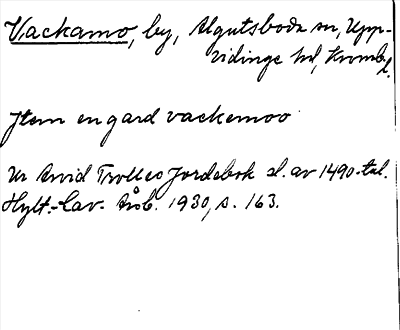 Vackamo, by, Algutsboda sn, Upp-
vidinge hd, Kronob. l.
Jtem en gard vackemoo
Ur Arvid Trolles Jordebok sl. av 1490-tal.
Hylt.-Cav. Årsb. 1930, s. 163.